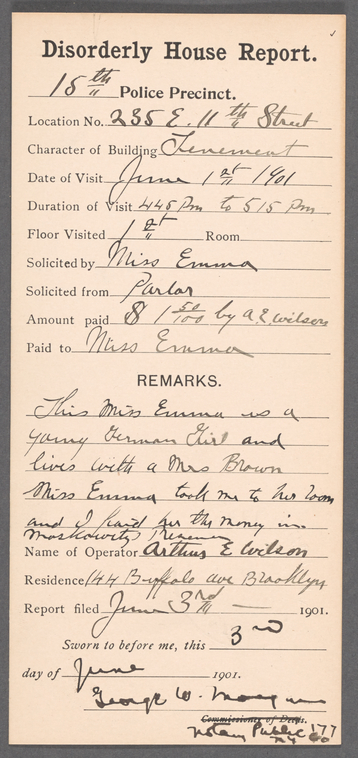 Disorderly House Report.
15th Police Precinct.
Location No. 235 E. 11th Street
Character of Building Tenement
Date of Visit June 1st 1901
Duration of Visit 445 Pm to 515 Pm
Floor Visited 1st Room
Solicited by Miss Emma
Solicited from Parlor
Amount paid $1 50/100 by A E Wilson
Paid to Miss Emma
REMARKS.
This Miss Emma is a
young German Girl and
lives with a Mrs Brown
Miss Emma took me to her room
and I paid her the money in
Moskowitz presence
Name of Operator Arthur E Wilson
Residence 144 Buffalo ave Brooklyn
Report filed June 3rd — 1901.
Sworn to before me, this 3rd
day of June 1901.
George W.
Commissioner of Deeds.
Notary Public 177
NY Co